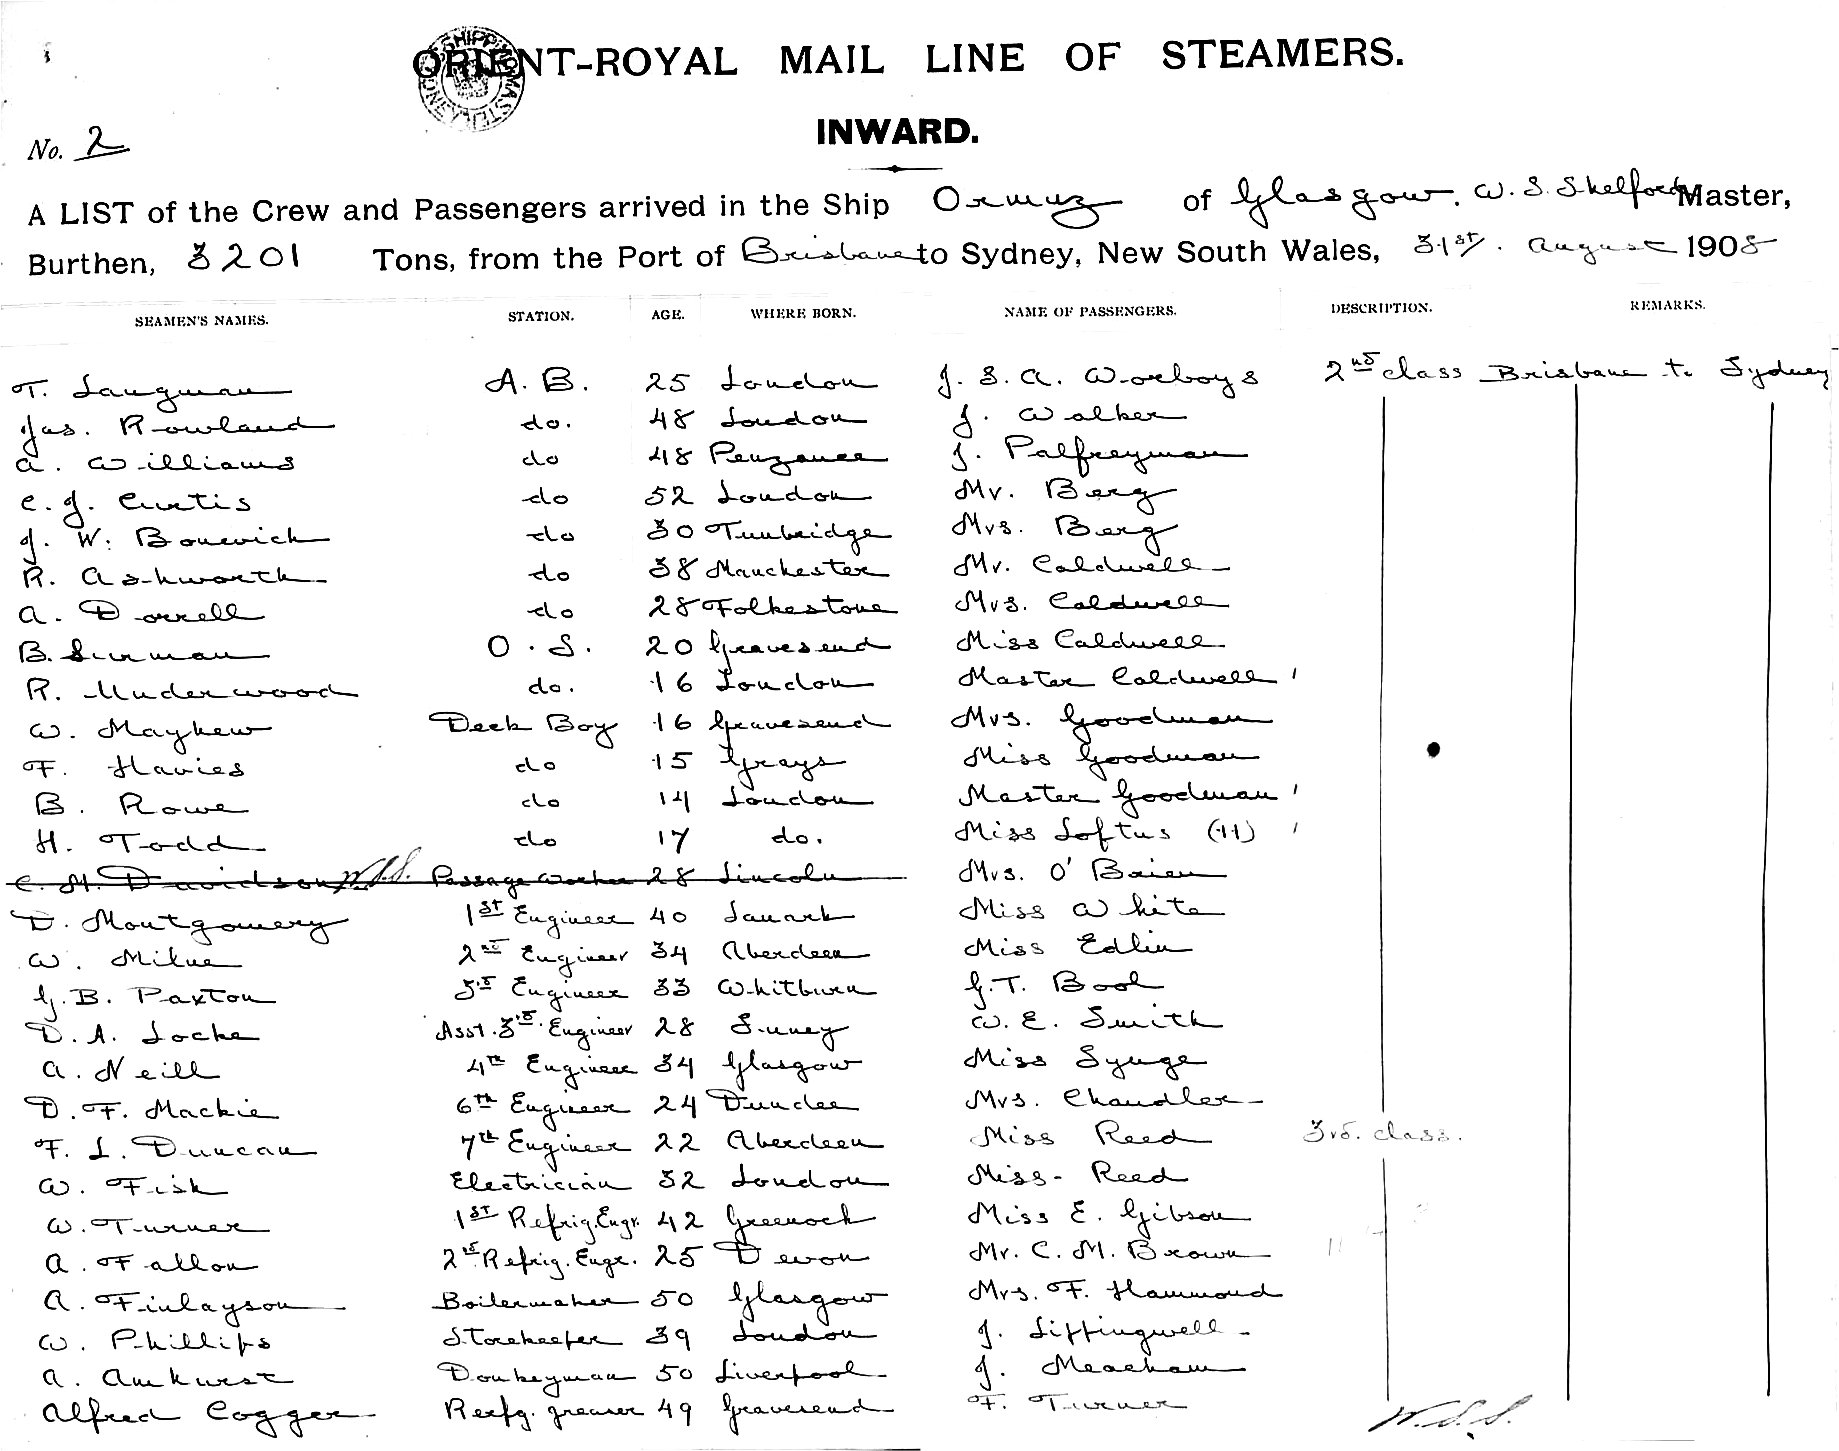 ORIENT-ROYAL MAIL LINE OF STEAMERS.
INWARD.
No. 2
A LIST of the Crew and Passengers arrived in the Ship Ormuz of Glasgow. W. S. Shelford Master,
Burthen, 3201 Tons, from the Port of Brisbane to Sydney, New South Wales, 31st. August 1908
SEAMEN'S NAMES. STATION. AGE. WHERE BORN. NAME OF PASSENGERS. DESCRIPTION. REMARKS.
T. Langman A. B. 25 London J. S. A. Worboys 2nd class Brisbane to Sydney
Jas. Rowland do. 48 London J. Walker
A. Williams do 48 Penzance J. Palfreyman
C. J. Curtis do 52 London Mr. Berg
J. W. Bonewick do 30 Tunbridge Mrs. Berg
R. Ashworth do 38 Manchester Mr. Caldwell
A. Dorrell do 28 Folkestone Mrs. Caldwell
B. Surman O. S. 20 Gravesend Miss Caldwell
R. Underwood do. 16 London Master Caldwell '
W. Mayhew Deck Boy 16 Gravesend Mrs. Goodman
F. Havies do 15 Grays Miss Goodman
B. Rowe do 14 London Master Goodman '
H. Todd do 17 do. Miss Loftus (11) '
C. M. Davidson W.S.S. Passage Worker 28 Lincoln Mrs. O'Brien
D. Montgomery 1st Engineer 40 Lanark Miss White
W. Milne 2nd Engineer 34 Aberdeen Miss Edlin
G. B. Paxton 3rd Engineer 33 Whitburn G. T. Bool
D. A. Locke Asst. 3rd. Engineer 28 Surrey W. E. Smith
A. Neill 4th Engineer 34 Glasgow Miss Synge
D. F. Mackie 6th Engineer 24 Dundee Mrs. Chandler
F. L. Duncan 7th Engineer 22 Aberdeen Miss Reed 3rd. class.
W. Fisk Electrician 32 London Miss Reed
W. Turner 1st Refrig. Engr. 42 Greenock Miss E. Gibson
A. Fallon 2nd Refrig. Engr. 25 Devon Mr. C. M. Brown
A. Finlayson Boilermaker 50 Glasgow Mrs. F. Hammond
W. Phillips Storekeeper 39 London J. Liffingwell
A. Amhurst Donkeyman 50 Liverpool J. Meacham
Alfred Cogger Reefg. greaser 49 Gravesend F. Turner
W.S.S.